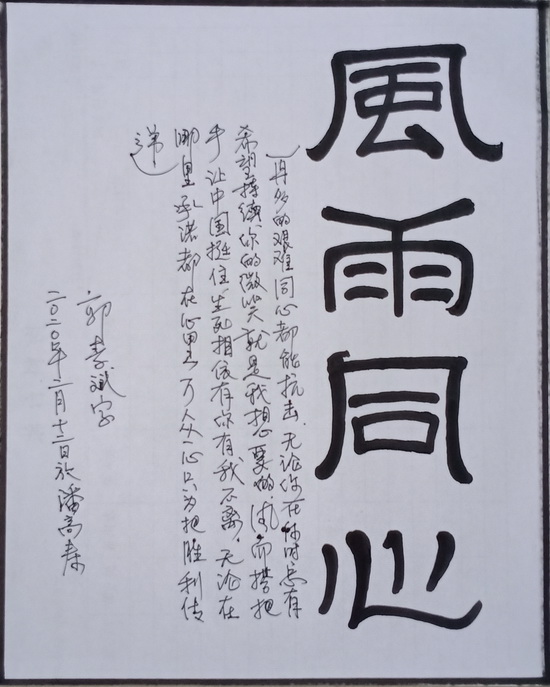 風雨同心
再多的艰难同心都能抗击,无论你在何时总有
希望持续你的微笑就是我想要的,风雨搭把
手让中国挺住生死相依有你有我不离,无论在
哪里承诺都在心里万众一心只为把胜利传
递
郭 斌字
二〇二〇年二月十二日於潘高寿